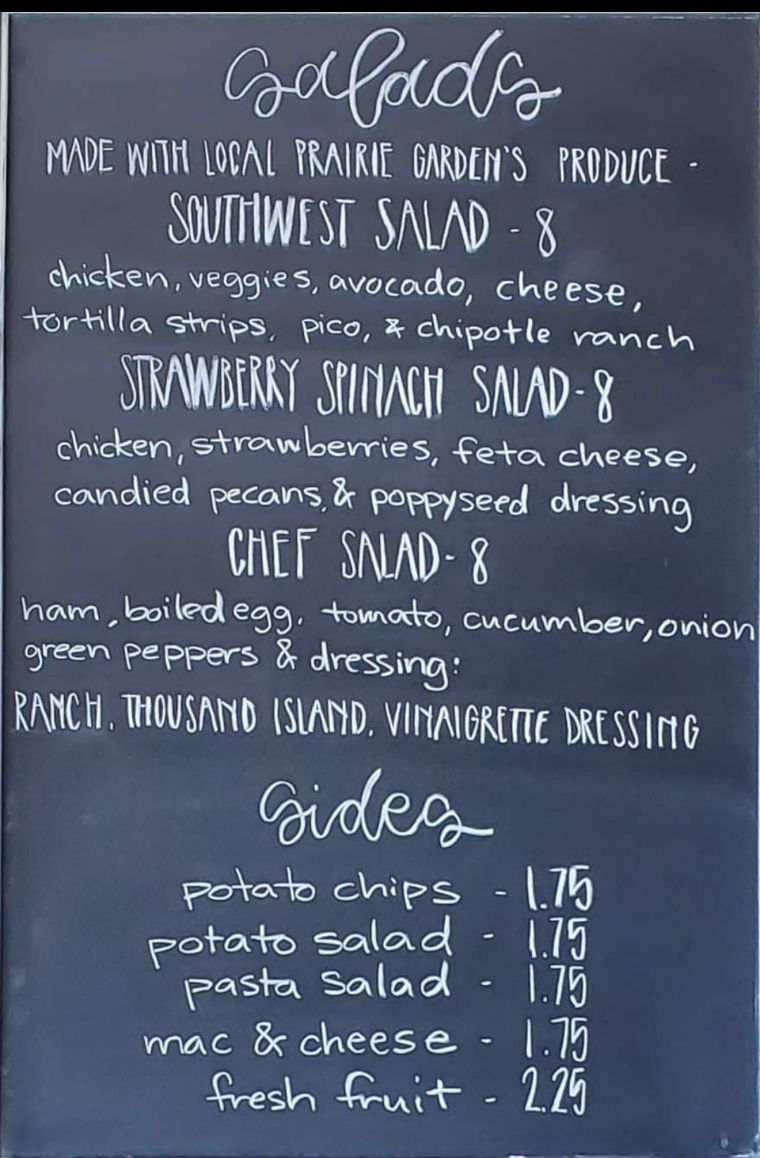 salads
MADE WITH LOCAL PRAIRIE GARDEN'S PRODUCE -
SOUTHWEST SALAD - 8
chicken, veggies, avocado, cheese,
tortilla strips, pico, & chipotle ranch
STRAWBERRY SPINACH SALAD - 8
chicken, strawberries, feta cheese,
candied pecans, & poppyseed dressing
CHEF SALAD - 8
ham, boiled egg, tomato, cucumber, onion
green peppers & dressing:
RANCH, THOUSAND ISLAND, VINAIGRETTE DRESSING
sides
potato chips - 1.75
potato salad - 1.75
pasta salad - 1.75
mac & cheese - 1.75
fresh fruit - 2.25